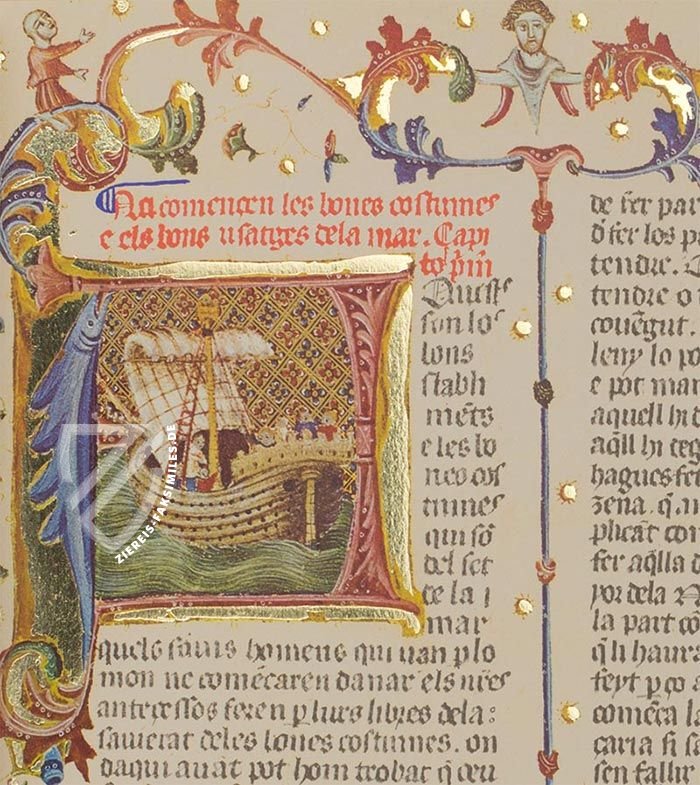 Ací comencen les bones costumes
e els bons usatges dela mar. Capi
to pm
Aquest
son los
bons
stabli
mets
e les bo
nes cos
tumes
qui só
del fet
de la
mar
quels savis homens qui van plo
mon ne comēcaren danar els nřes
antecessos feren p lurs libres dela
savietat deles bones costumes. on
daqui avāt pot hom trobar q̄ deu
de fer par
d fer los p
tendre.
tendre o
covēgut
leny lo po
e pot mar
aquell hi
aq̄ll hi
hagues fet
zena. q. ai
plicat con
fer aq̄lla
yor dela
la part co
q̄ li haura
feyt p ço a
comēca la
caria si sa
sen fallir
ZIEREIS-FAKSIMILES.DE